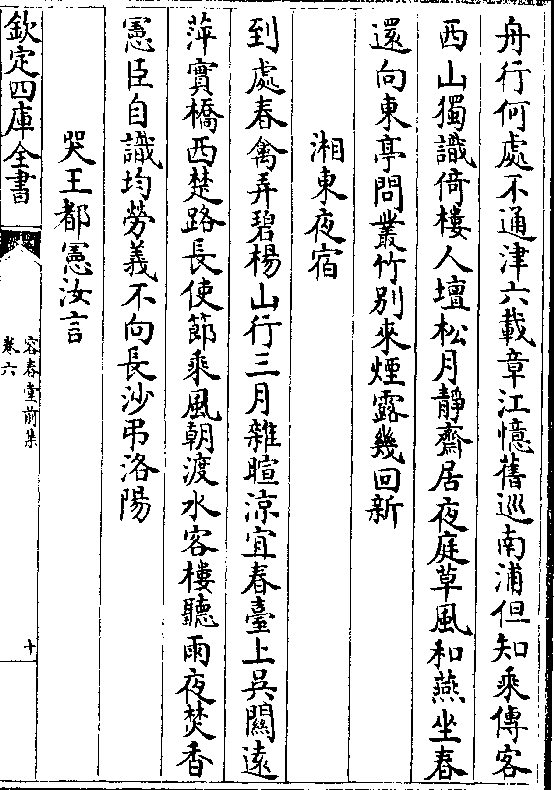 舟行何處不通津六載章江憶舊巡南浦但知乘傳客
西山獨識倚樓人壇松月靜齋居夜庭草風和燕坐春
還向東亭問叢竹别來煙露幾回新
湘東夜宿
到處春禽弄碧楊山行三月雜暄涼宜春臺上吳關遠
萍實橋西楚路長使節乘風朝渡水客樓聽雨夜焚香
憲臣自識均勞義不向長沙弔洛陽
哭王都憲汝言
欽定四庫全書
容春堂前集
卷六
十